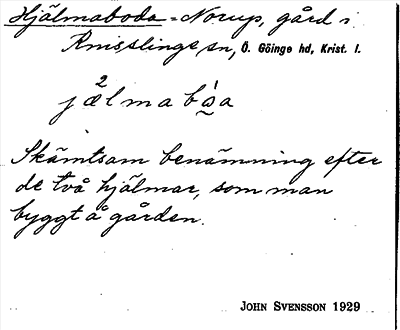 Hjälmaboda = Norup, gård i
Knisslinge sn, Ö. Göinge hd, Krist. l.
jä²lmabs̱a
Skämtsam benämning efter
de två hjälmar, som man
byggt å gården.
JOHN SVENSSON 1929